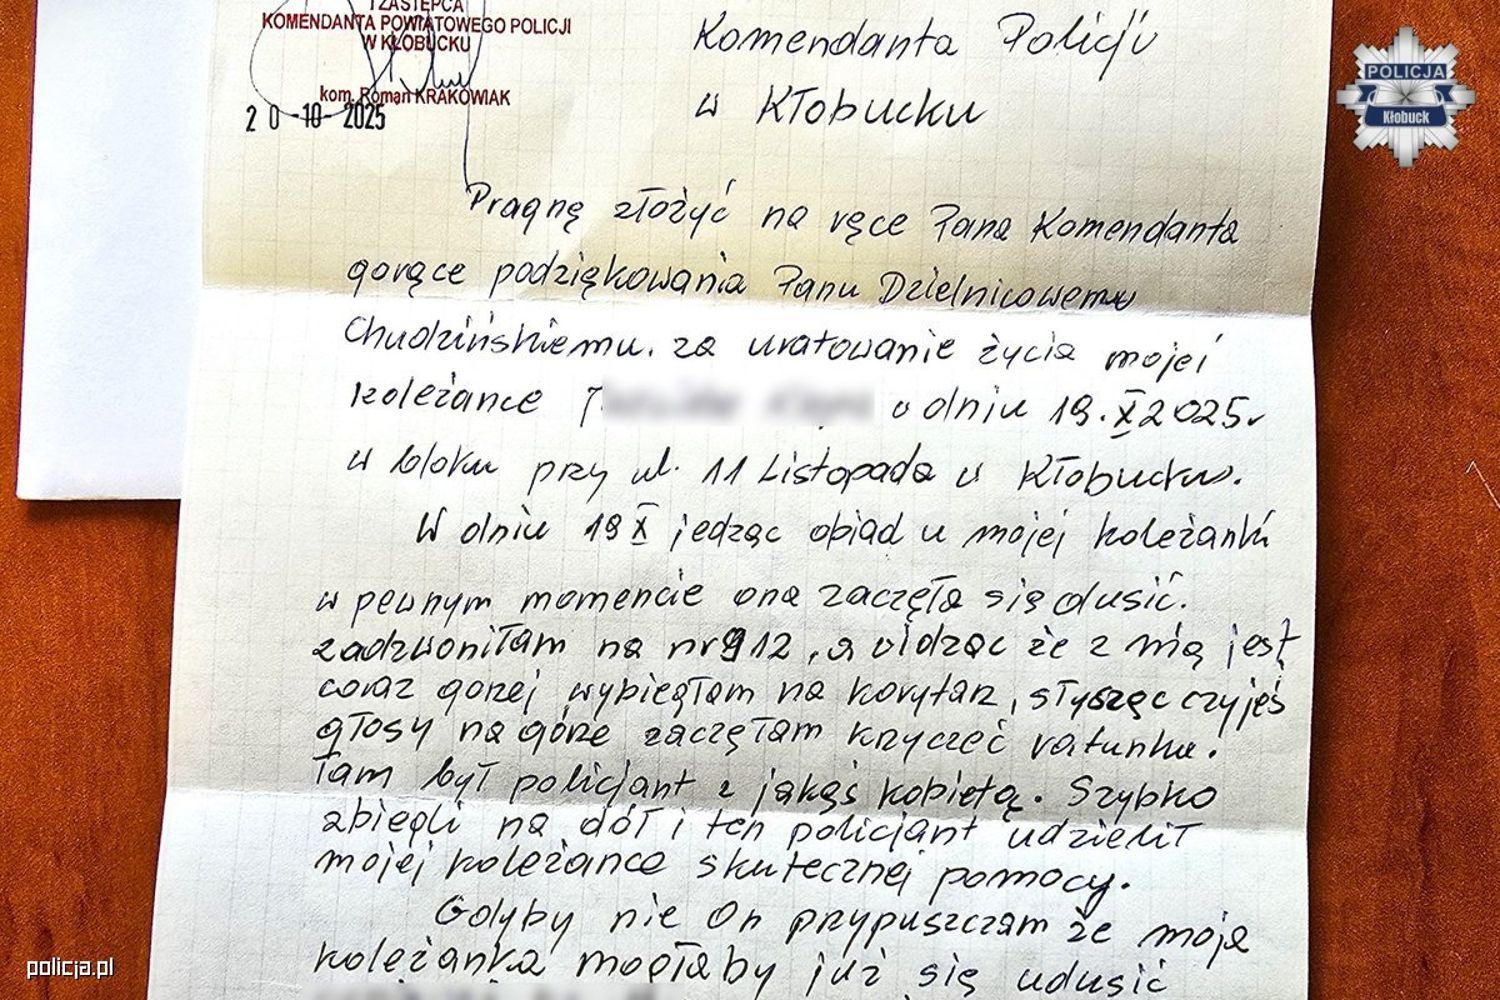 I ZASTĘPCA
KOMENDANTA POWIATOWEGO POLICJI
W KŁOBUCKU
kom. Roman KRAKOWIAK
20 -10- 2025
Komendanta Policji
w Kłobucku
POLICJA
Kłobuck
Pragnę złożyć na ręce Pana Komendanta
gorące podziękowania Panu Dzielnicowemu
Chudzińskiemu. za uratowanie życia mojej
koleżance w dniu 19.X2025r
w bloku przy ul. 11 Listopada w Kłobucku.
W dniu 19 X jedząc obiad u mojej koleżanki
w pewnym momencie ona zaczęła się dusić.
zadzwoniłam na nr 912, a widząc że z nią jest
coraz gorzej wybiegłam na korytarz, słysząc czyjeś
głosy na górze zaczęłam krzyczeć ratunku.
Tam był policjant z jakąś kobietą. Szybko
zbiegli na dół i ten policjant udzielił
mojej koleżance skutecznej pomocy.
Gdyby nie On przypuszczam że moja
koleżanka mogłaby już się udusić
policja.pl